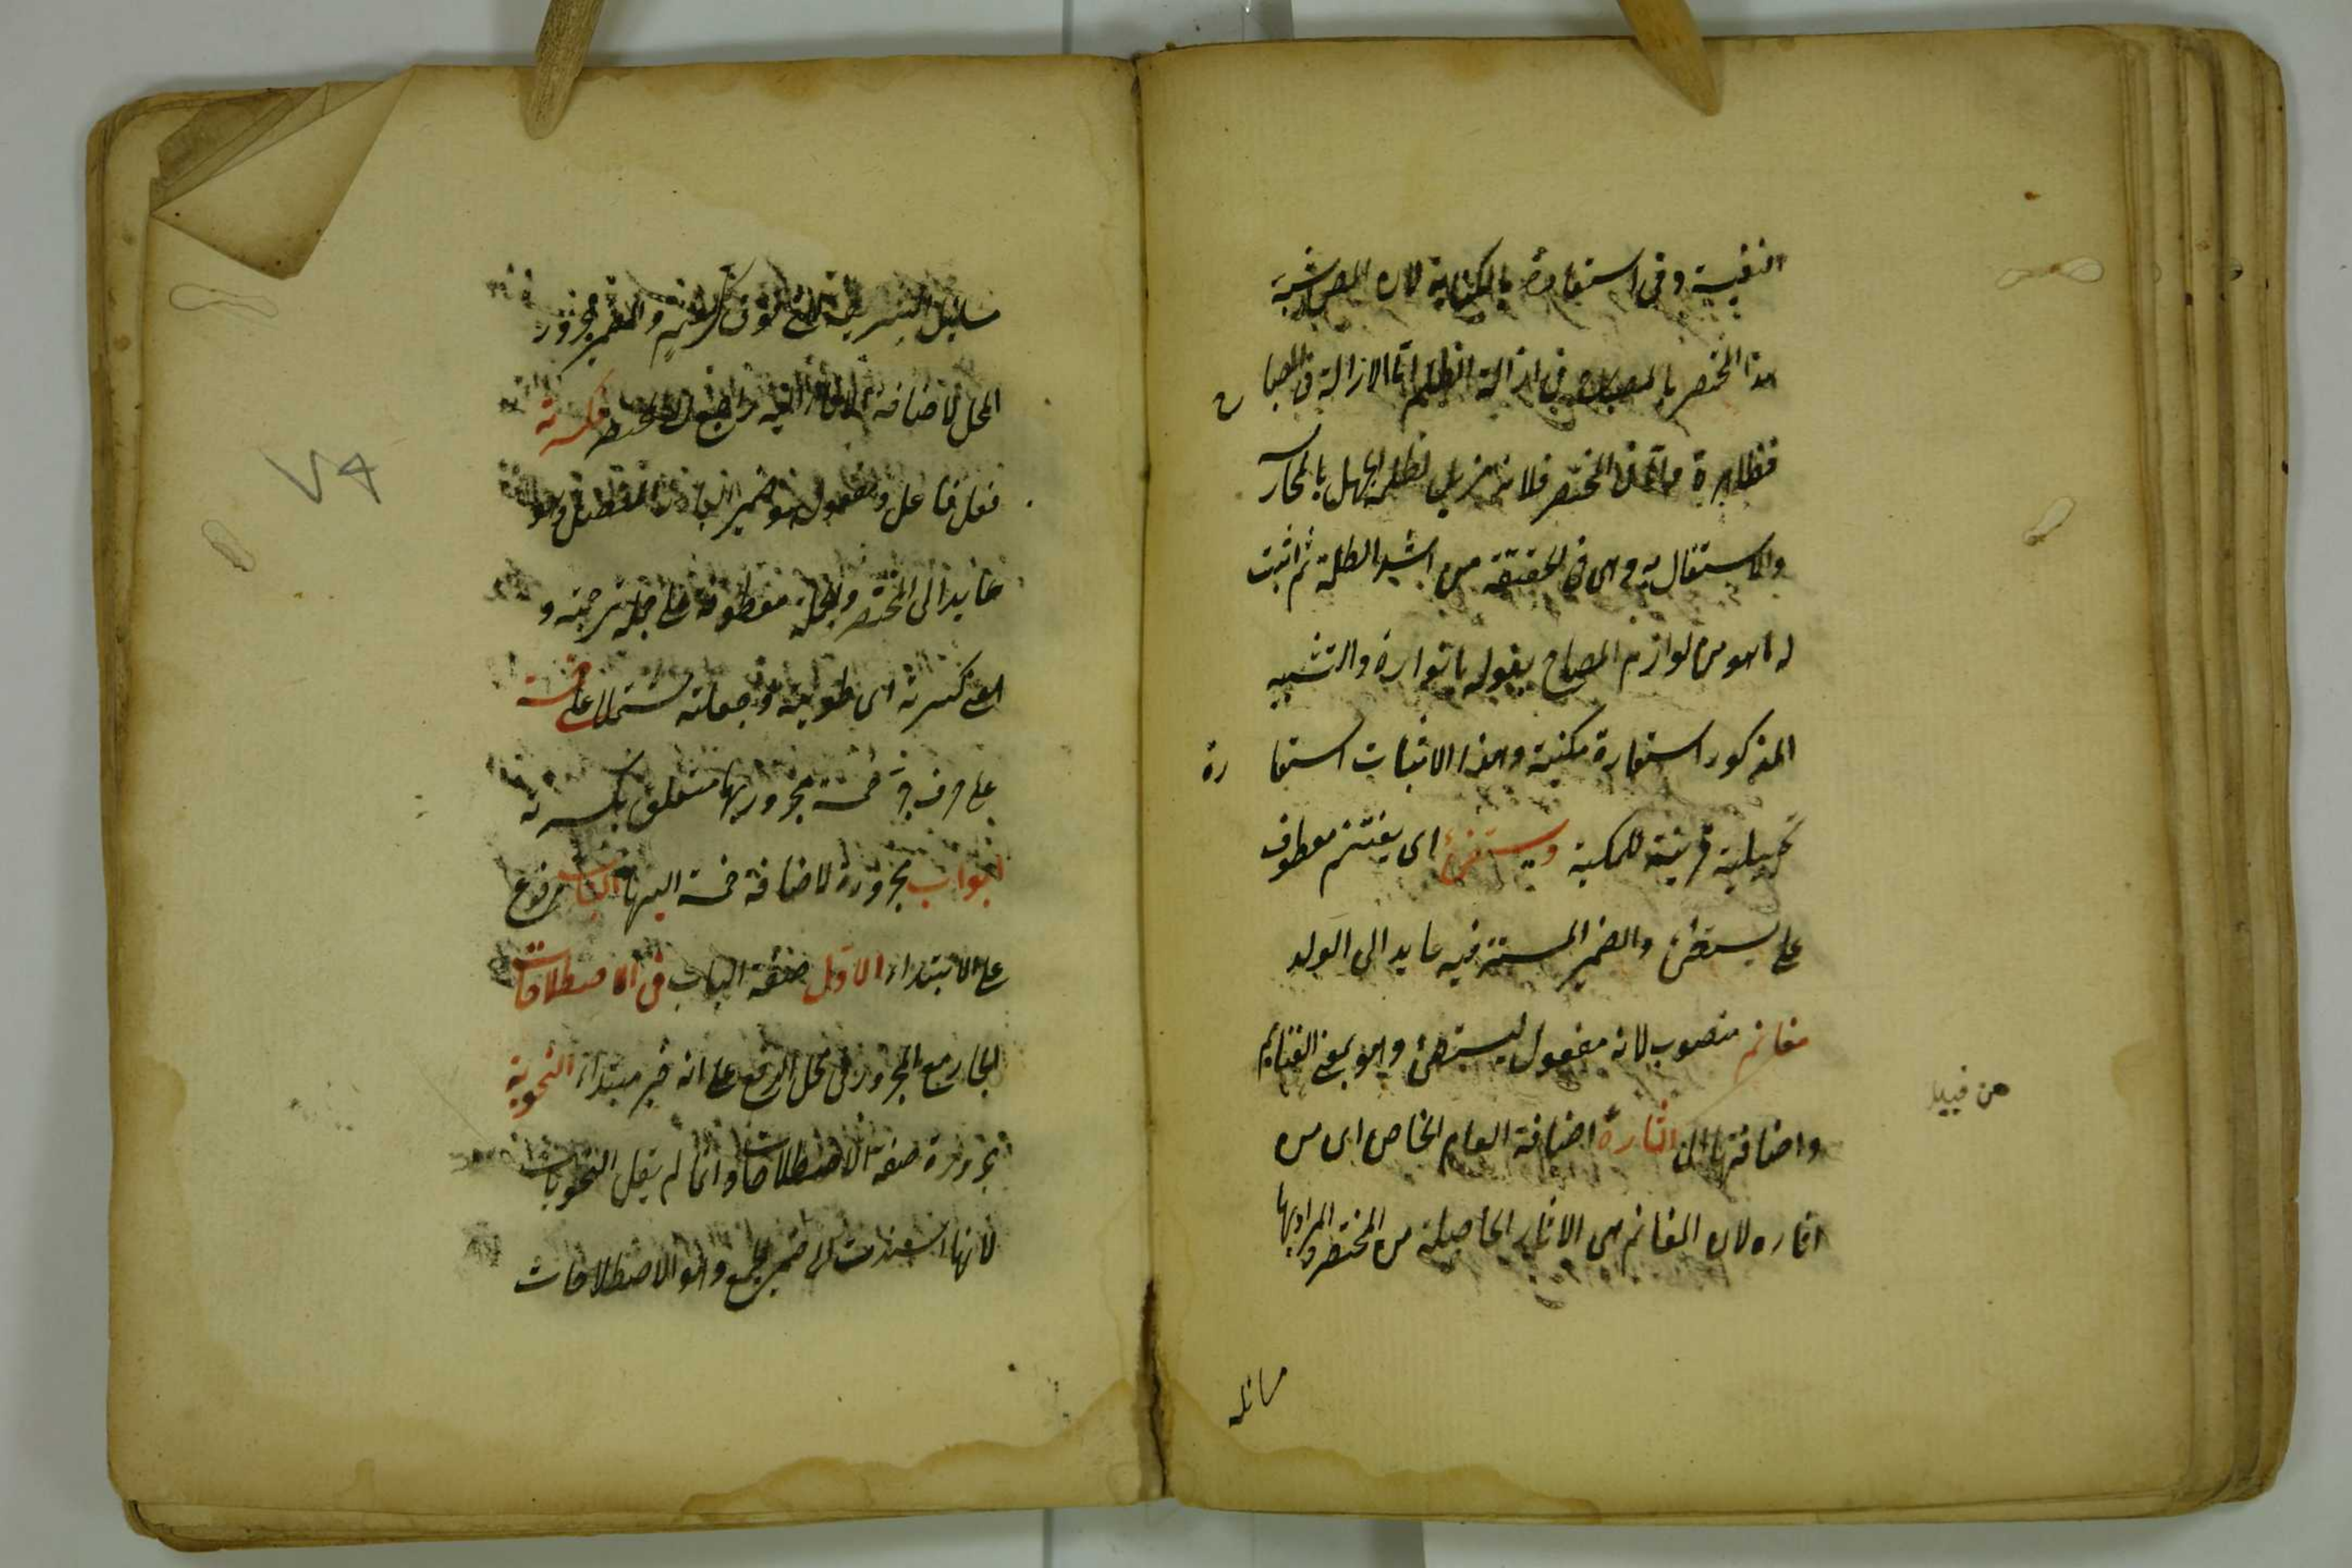 النفيسة وفى استعارة بالكناية لان المص شبه
هذا المختصر بالمصباح فى ازالة الظلم اما الازالة فى المصبا
ح
فظاهرة واما فى المختصر فلانه مزيل لظلمة الجهل بالمحار
والاستقال به وهى فى الحقيقة من اشد الظلمة ثم اثبت
له ما هو من لوازم المصباح بقوله بانواره والتشبيه
المذكور استعارة مكنية وهذا الاثبات استعا
رة
تخييلية قرينة للمكنية ويستغنم اى يغتنم معطوف
على يستضئ والضمير المستتر فيه عايد الى الولد
مغانم منصوب لانه مفعول ليستضئ وهو بمعنى الغنايم
واضافتها الى اثاره اضافة العام الخاص اى من
من قبيل
اثاره لان المغانم هى الاثار الحاصلة من المختصر والمراد بها
مسائله
مسايل والضمير مجرور
المحل لاضافة الاثار اليه راجع الى المختصر وكسرته
فعل فاعل ومفعول هو ضمير البارز المتصل وهو
عايد الى المختصر والجملة معطوفة على جملة ترجمته و
معنى كسرته اى طويته وجعلته مشتملا على خمسة
على حرف جر خمسة مجرور بها متعلق بكسرته
ابواب مجرورة لاضافة خمسة اليها الباب مرفوع
على الابتداء الاول صفة الباب فى الاصطلاحات
الجار مع المجرور فى محل الرفع على انه خبر مبتداء النحوية
مجرورة صفة الاصطلاحات وانما لم يقل النحويات
لانها اسندت الى ضمير الجمع وهو الاصطلاحات